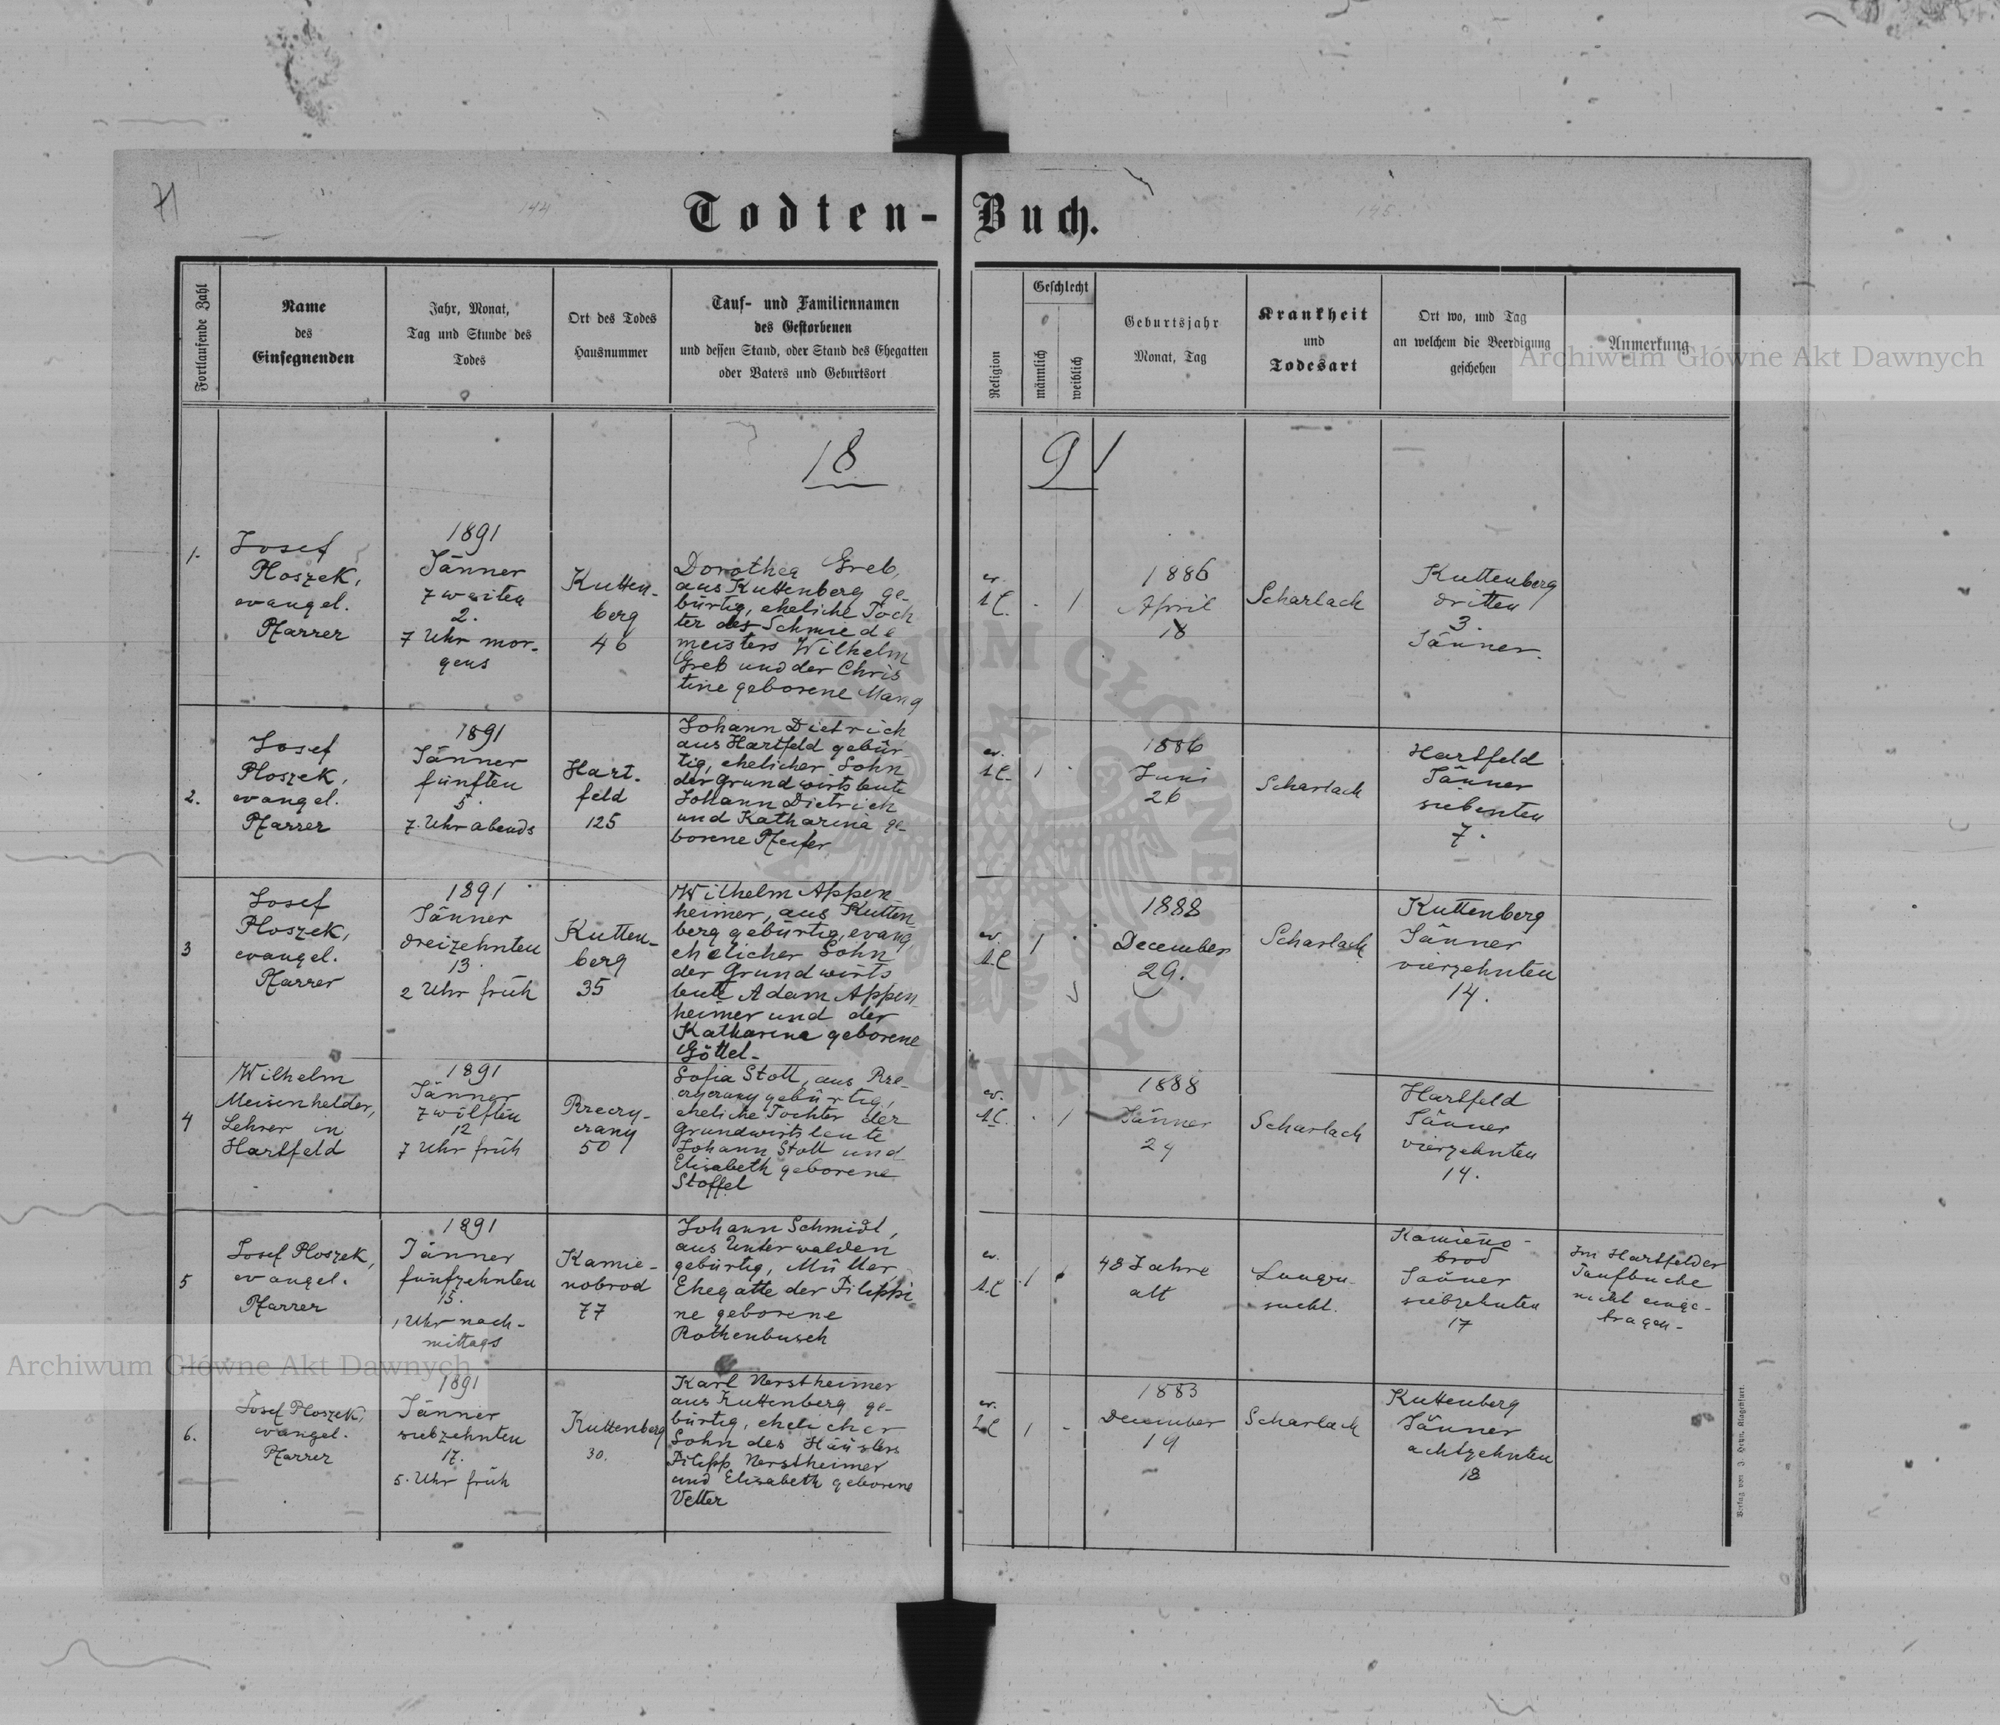 71
144
145.
Todten-Buch.
Fortlaufende Zahl
Name
des
Einsegnenden
Jahr, Monat,
Tag und Stunde des
Todes
Ort des Todes
Hausnummer
Tauf- und Familiennamen
des Gestorbenen
und dessen Stand, oder Stand des Ehegatten
oder Vaters und Geburtsort
Religion
Geschlecht
männlich
weiblich
Geburtsjahr
Monat, Tag
Krankheit
und
Todesart
Ort wo, und Tag
an welchem die Beerdigung
geschehen
Anmerkung
Archiwum Główne Akt Dawnych
18
91
1.
Josef
Ploszek,
evangel.
Pfarrer
1891
Jänner
zweiten
2.
7 Uhr mor-
gens
Kutten-
berg
46
Dorothea Greb,
aus Kuttenberg ge-
bürtig, eheliche Toch
ter des Schmiede
meisters Wilhelm
Greb und der Chris
tine geborene Mang
ev.
A.C.
- 1
1886
April
18
Scharlach
Kuttenberg
dritten
3.
Jänner.
2.
Josef
Ploszek,
evangel.
Pfarrer
1891
Jänner
fünften
5.
7. Uhr abends
Hart-
feld
125
Johann Dietrich
aus Hartfeld gebür
tig, ehelicher Sohn
der Grundwirtsleute
Johann Dietrich
und Katharina ge-
borene Pfeifer
ev.
A.C.
1 -
1886
Juni
26
Scharlach
Hartfeld
Jänner
siebenten
7.
3
Josef
Ploszek,
evangel.
Pfarrer
1891
Jänner
dreizehnten
13.
2 Uhr früh
Kutten-
berg
35
Wilhelm Appen
heimer, aus Kutten
berg gebürtig, evang,
ehelicher Sohn
der Grundwirts
leute Adam Appen-
heimer und der
Katharina geborene
Göttel-
ev.
A.C
1 -
1888
December
29.
Scharlach
Kuttenberg
Jänner
vierzehnten
14.
4
Wilhelm
Meisenhelder,
Lehrer in
Hartfeld
1891
Jänner
zwölften
12
7 Uhr früh
Rzeczy-
czany
50
Sofia Stott, aus Rze-
czyczany gebürtig,
eheliche Tochter der
Grundwirtsleute
Johann Stott und
Elisabeth geborene
Stoffel
ev.
A.C.
- 1
1888
Jänner
29
Scharlach
Hartfeld
Jänner
vierzehnten
14.
5
Josef Ploszek,
evangel.
Pfarrer
1891
Jänner
fünfzehnten
15.
1 Uhr nach-
mittags
Kamie-
nobrod
77
Johann Schmidt,
aus Unterwalden
gebürtig, Müller
Ehegatte der Filippi
ne geborene
Rothenbusch
ev.
A.C
1
48 Jahre
alt
Lungen-
sucht.
Kamieno-
brod
Jänner
siebzehnten
17
Im Hartfelder
Taufbuche
nicht einge-
tragen-
6.
Josef Ploszek,
evangel.
Pfarrer
1891
Jänner
siebzehnten
17.
5. Uhr früh
Kuttenberg
30.
Karl Kerstheimer
aus Kuttenberg ge-
bürtig, ehelicher
Sohn des Häuslers
Filipp Kerstheimer
und Elisabeth geborene
Vetter
ev.
A.C
1 -
1883
December
19
Scharlach
Kuttenberg
Jänner
achtzehnten
18
Archiwum Główne Akt Dawnych
Verlag von J. Heyn, Klagenfurt.